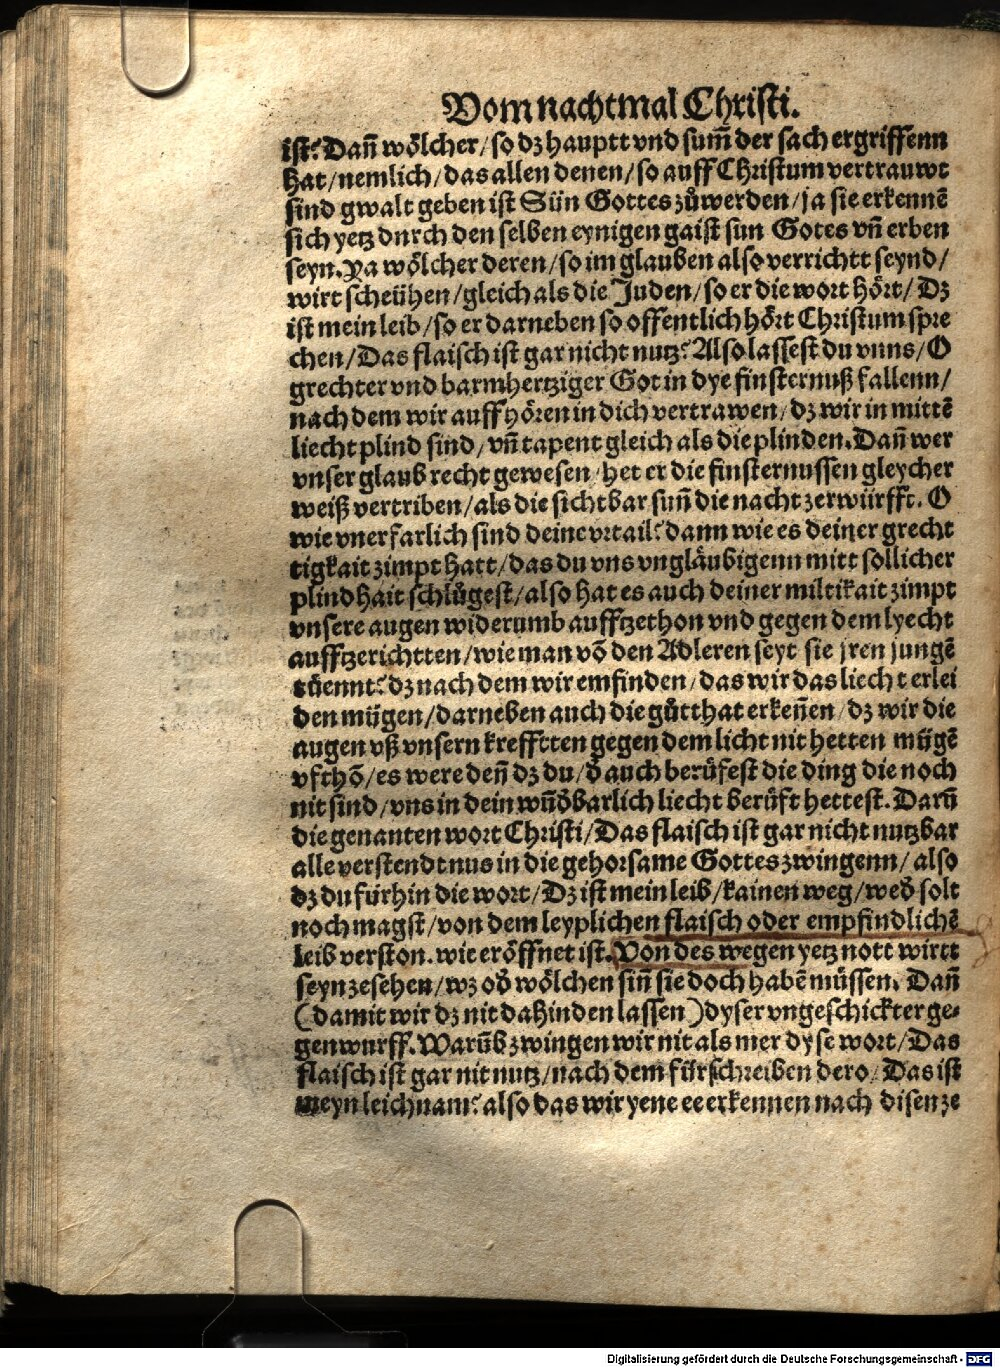 Vom nachtmal Christi.
ist? Dañ wölcher/ so dz hauptt vnd sum̃ der sach ergriffenn
hat/ nemlich/ das allen denen/ so auff Christum vertrauwt
sind gwalt geben ist Sün Gottes zůwerden/ ja sie erkennẽ
sich yetz durch den selben eynigen gaist sün Gotes vñ erben
seyn. Ya wölcher deren/ so im glauben also verrichtt seynd/
wirt scheühen/ gleich als die Juden/ so er die wort hört/ Dz
ist mein leib/ so er darneben so offentlich hört Christum spre
chen/ Das flaisch ist gar nicht nutz? Also lassest du vnns/ O
grechter vnd barmhertziger Got in dye finsternuß fallenn/
nach dem wir auffhören in dich vertrawen/ dz wir in mittẽ
liecht plind sind/ vñ tapent gleich als die plinden. Dañ wer
vnser glaub recht gewesen/ het er die finsternussen gleycher
weiß vertriben/ als die sichtbar sun̄ die nacht zerwürfft. O
wie vnerfarlich sind deine vrtail? dann wie es deiner grecht
tigkait zimpt hatt/ das du vns vngläubigenn mitt sollicher
plindhait schlůgest/ also hat es auch deiner miltikait zimpt
vnsere augen widerumb aufftzethon vnd gegen dem lyecht
aufftzerichtten/ wie man võ den Adleren seyt sie jren jungẽ
tüennt? dz nach dem wir emfinden/ das wir das liecht erlei
den mügen/ darneben auch die gůtthat erkeñen/ dz wir die
augen vß vnsern krefftten gegen dem licht nit hetten mügẽ
vfthõ/ es were deñ dz du/ d̃ auch berüfest die ding die noch
nit sind/ vns in dein wũd̃barlich liecht berüft hettest. Darũ
die genanten wort Christi/ Das flaisch ist gar nicht nutzbar
alle verstendtnus in die gehorsame Gottes zwingenn/ also
dz du fürhin die wort/ Dz ist mein leib/ kainen weg/ wed̃ solt
noch magst/ von dem leyplichen flaisch oder empfindlichẽ
leib verston. wie eröffnet ist. Von des wegen yetz nott wirtt
seyn zesehen/ wz od̃ wölchen siñ sie doch habẽ müssen. Dañ
(damit wir dz nit dahinden lassen) dyser vngeschickter ge-
genwurff. Warũb zwingen wir nit als mer dyse wort/ Das
flaisch ist gar nit nutz/ nach dem fürschreiben dero/ Das ist
meyn leichnam? also das wir yene ee erkennen nach disen ze
Digitalisierung gefördert durch die Deutsche Forschungsgemeinschaft - DFG